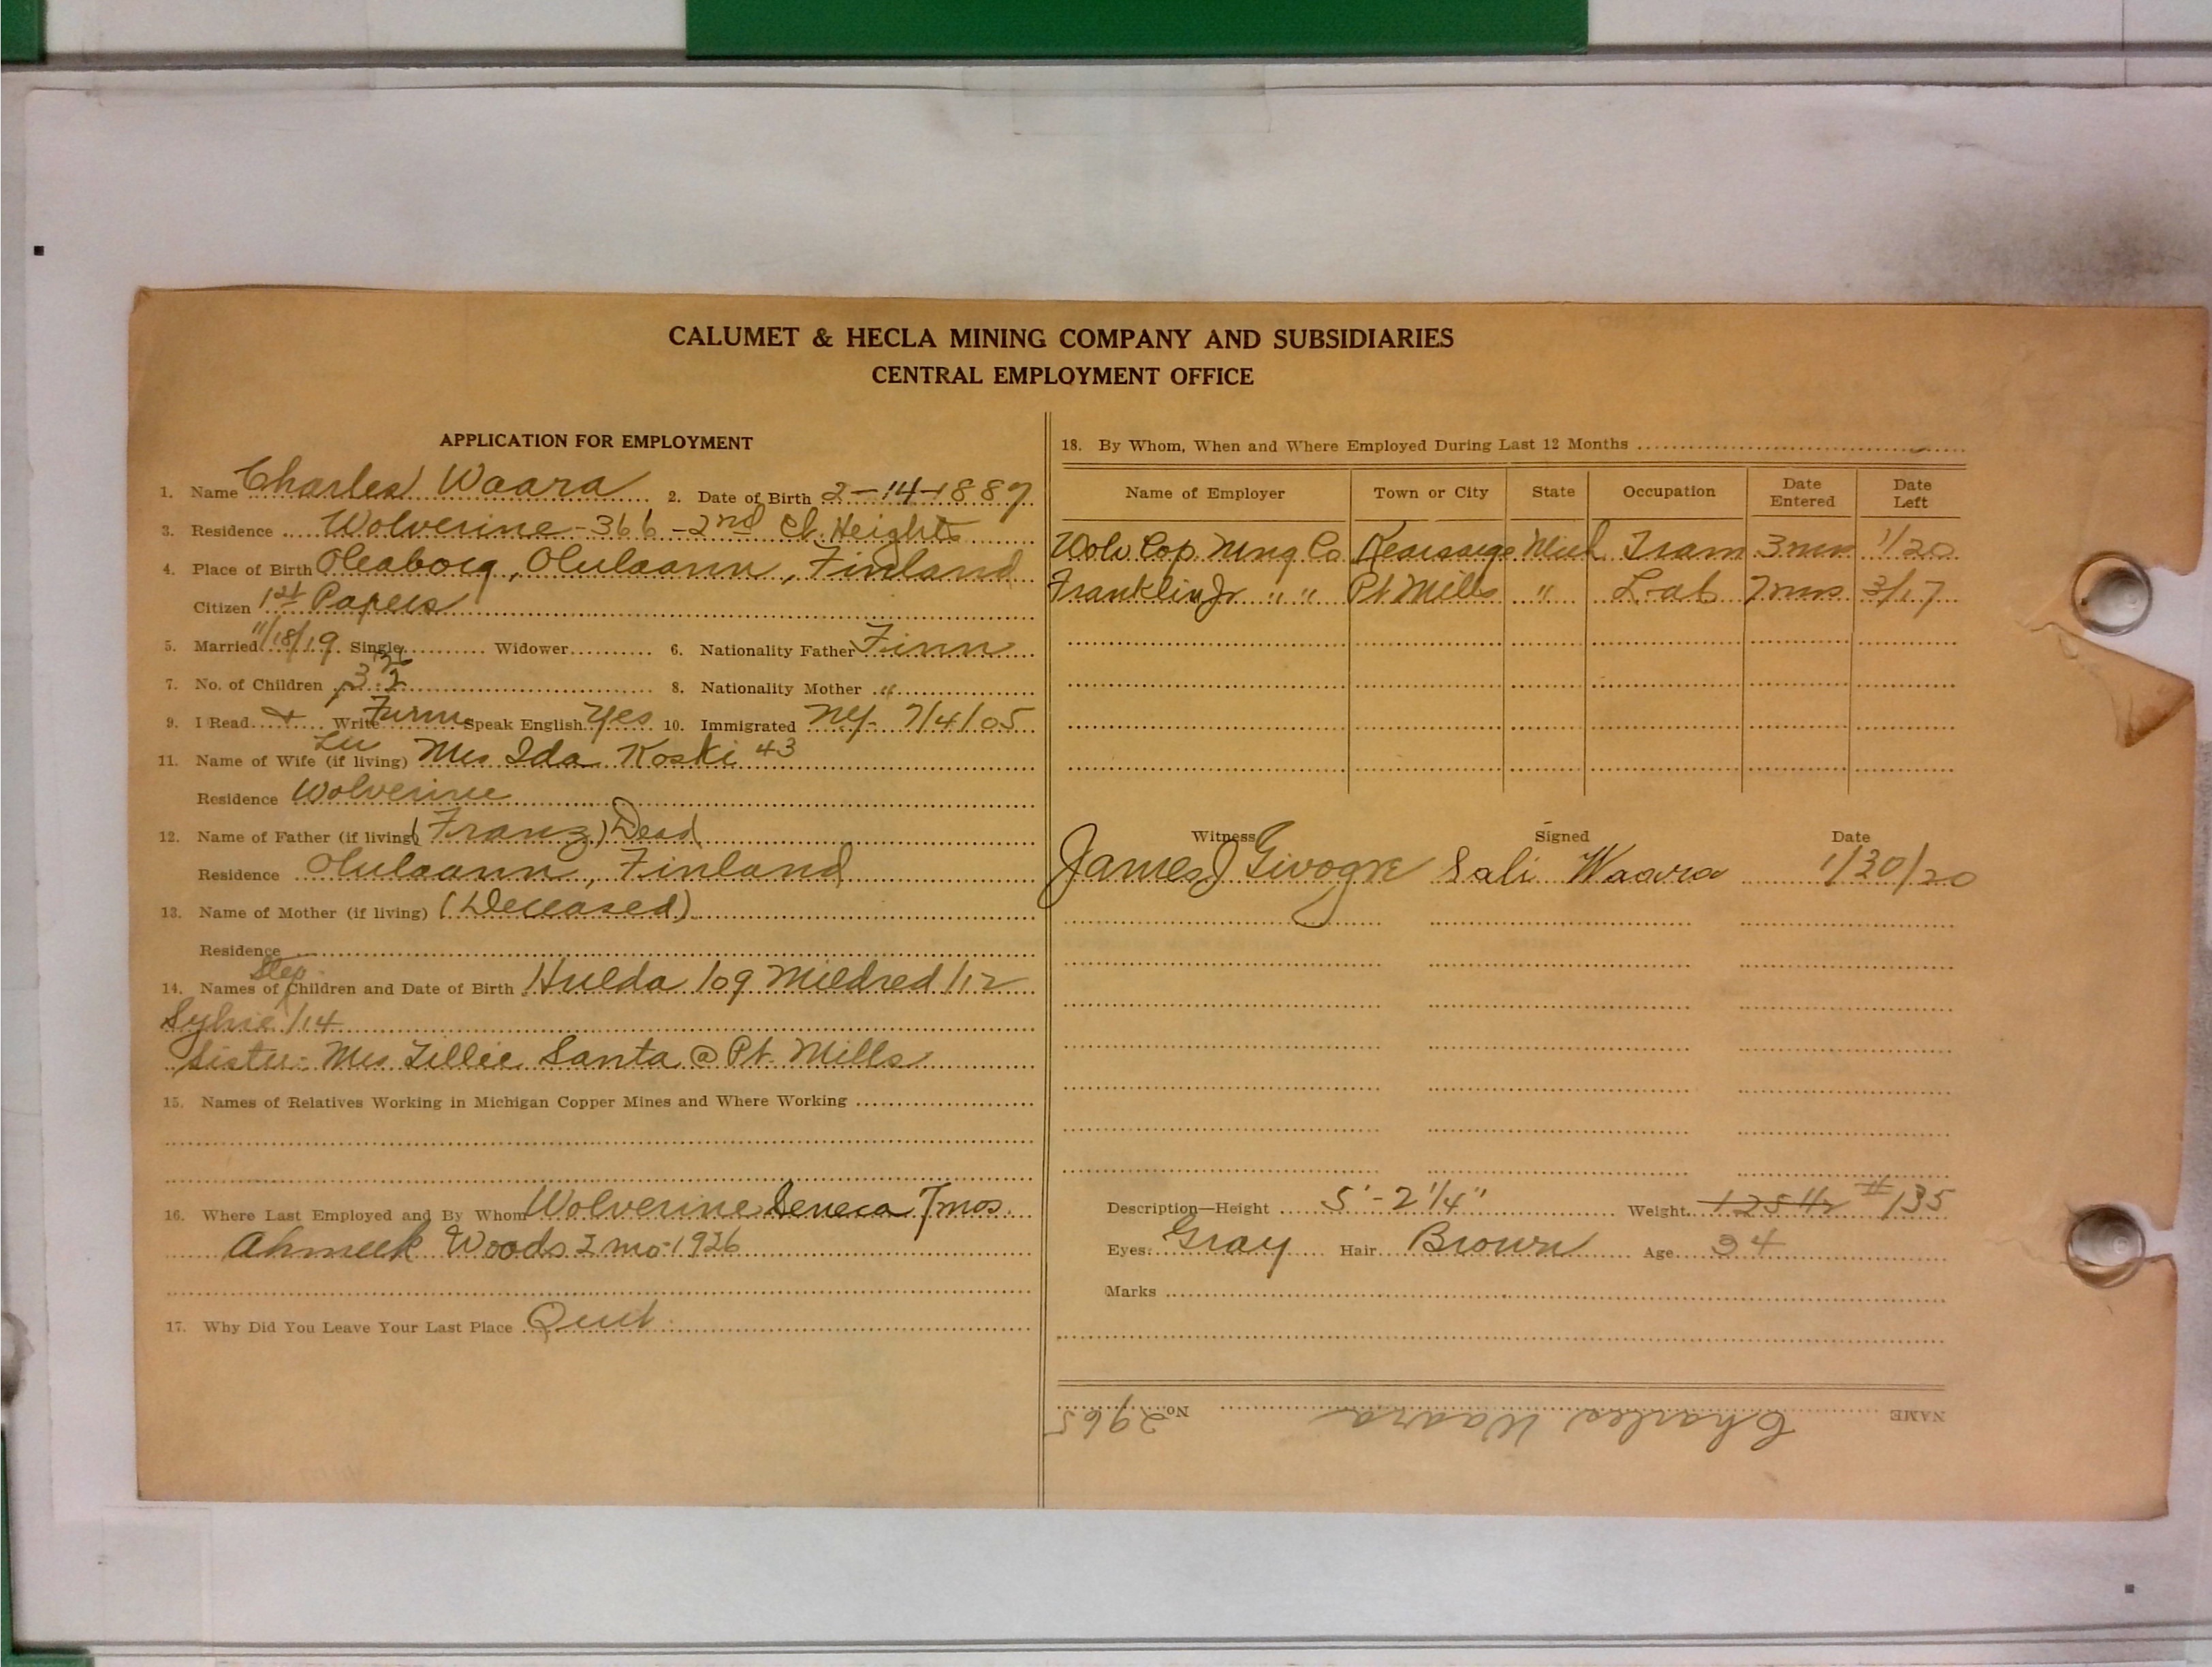 CALUMET & HECLA MINING COMPANY AND SUBSIDIARIES
CENTRAL EMPLOYMENT OFFICE
APPLICATION FOR EMPLOYMENT
1. Name Charles Waara 2. Date of Birth 2-14-1887
3. Residence Wolverine - 366 - 2nd Cl. Heights
4. Place of Birth Oleaborg, Olulaann, Finland
Citizen 1st Papers
5. Married 11/18/19 Single Widower 6. Nationality Father Finn
7. No. of Children 3 2 8. Nationality Mother "
9. I Read + Write Finn Speak English Yes 10. Immigrated NY- 7/4/05
11. Name of Wife (if living) Mrs Ida Koski 43
Residence Wolverine
12. Name of Father (if living) (Franz) Dead
Residence Olulaann, Finland
13. Name of Mother (if living) (Deceased)
Residence
Step
14. Names of Children and Date of Birth Hulda /09 Mildred /12
Sylvie /14
Sister- Mrs Lillie Santa @ Pt. Mills
15. Names of Relatives Working in Michigan Copper Mines and Where Working
16. Where Last Employed and By Whom Wolverine Seneca 7 mos.
Ahmeek Woods 2 mo- 1926
17. Why Did You Leave Your Last Place Quit
18. By Whom, When and Where Employed During Last 12 Months
Name of Employer Town or City State Occupation Date Entered Date Left
Wolv Cop Mng Co Kearsarge Mich Tram 3 mos 1/20
Franklin Jr " " Pt Mills " Lab 7 mos 3/17
Witness Signed Date
James J Givogre Sali Waara 1/30/20
Description—Height 5'-2 1/4" Weight 125 1/2 # 135
Eyes: Gray Hair Brown Age 34
Marks
NAME Charles Waara No. 2965